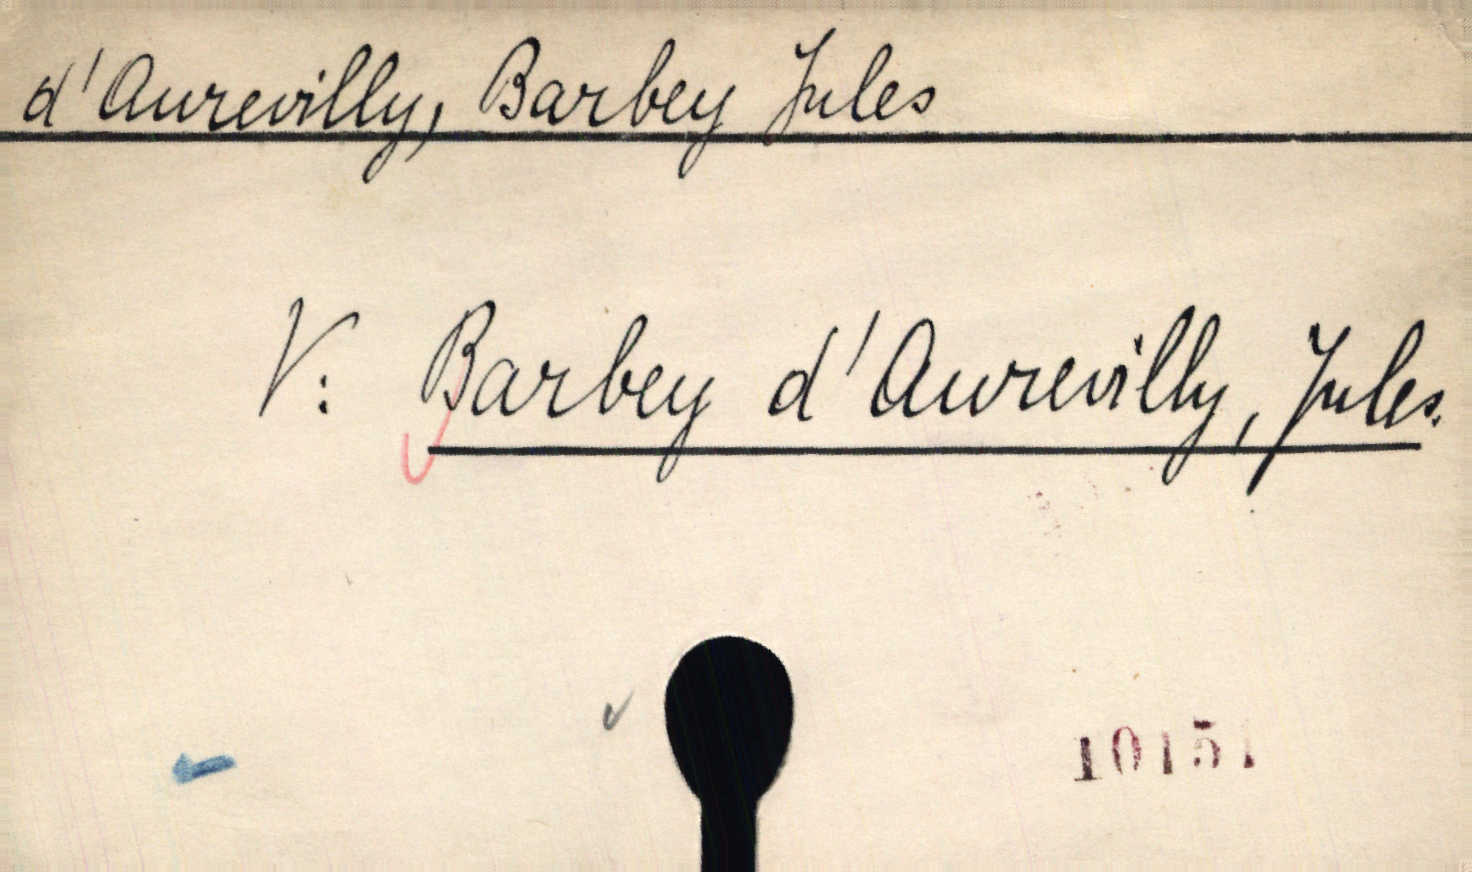 d'Aurevilly, Barbey Jules
V: Barbey d'Aurevilly, Jules.
10151